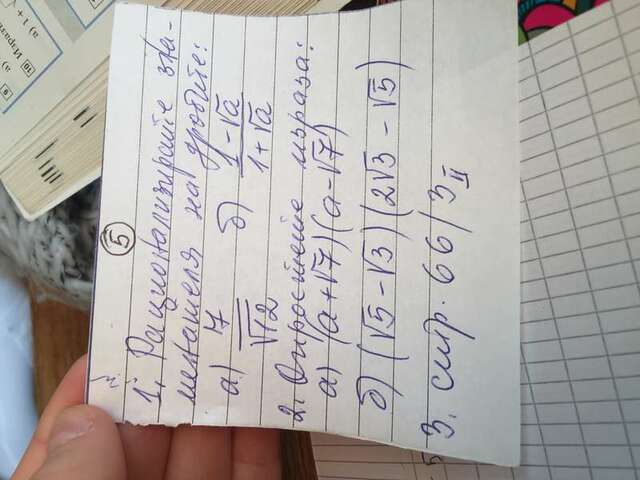 5
1. Рационализирайте зна-
менателя на дробите:
а) 7/√12 б) 1-√a/1+√a
2. Опростете израза:
а) (a+√7)(a-√7)
б) (√5-√3)(2√3-√5)
3. стр. 66/3 II
9 а)
10 Израз
а) 1+√